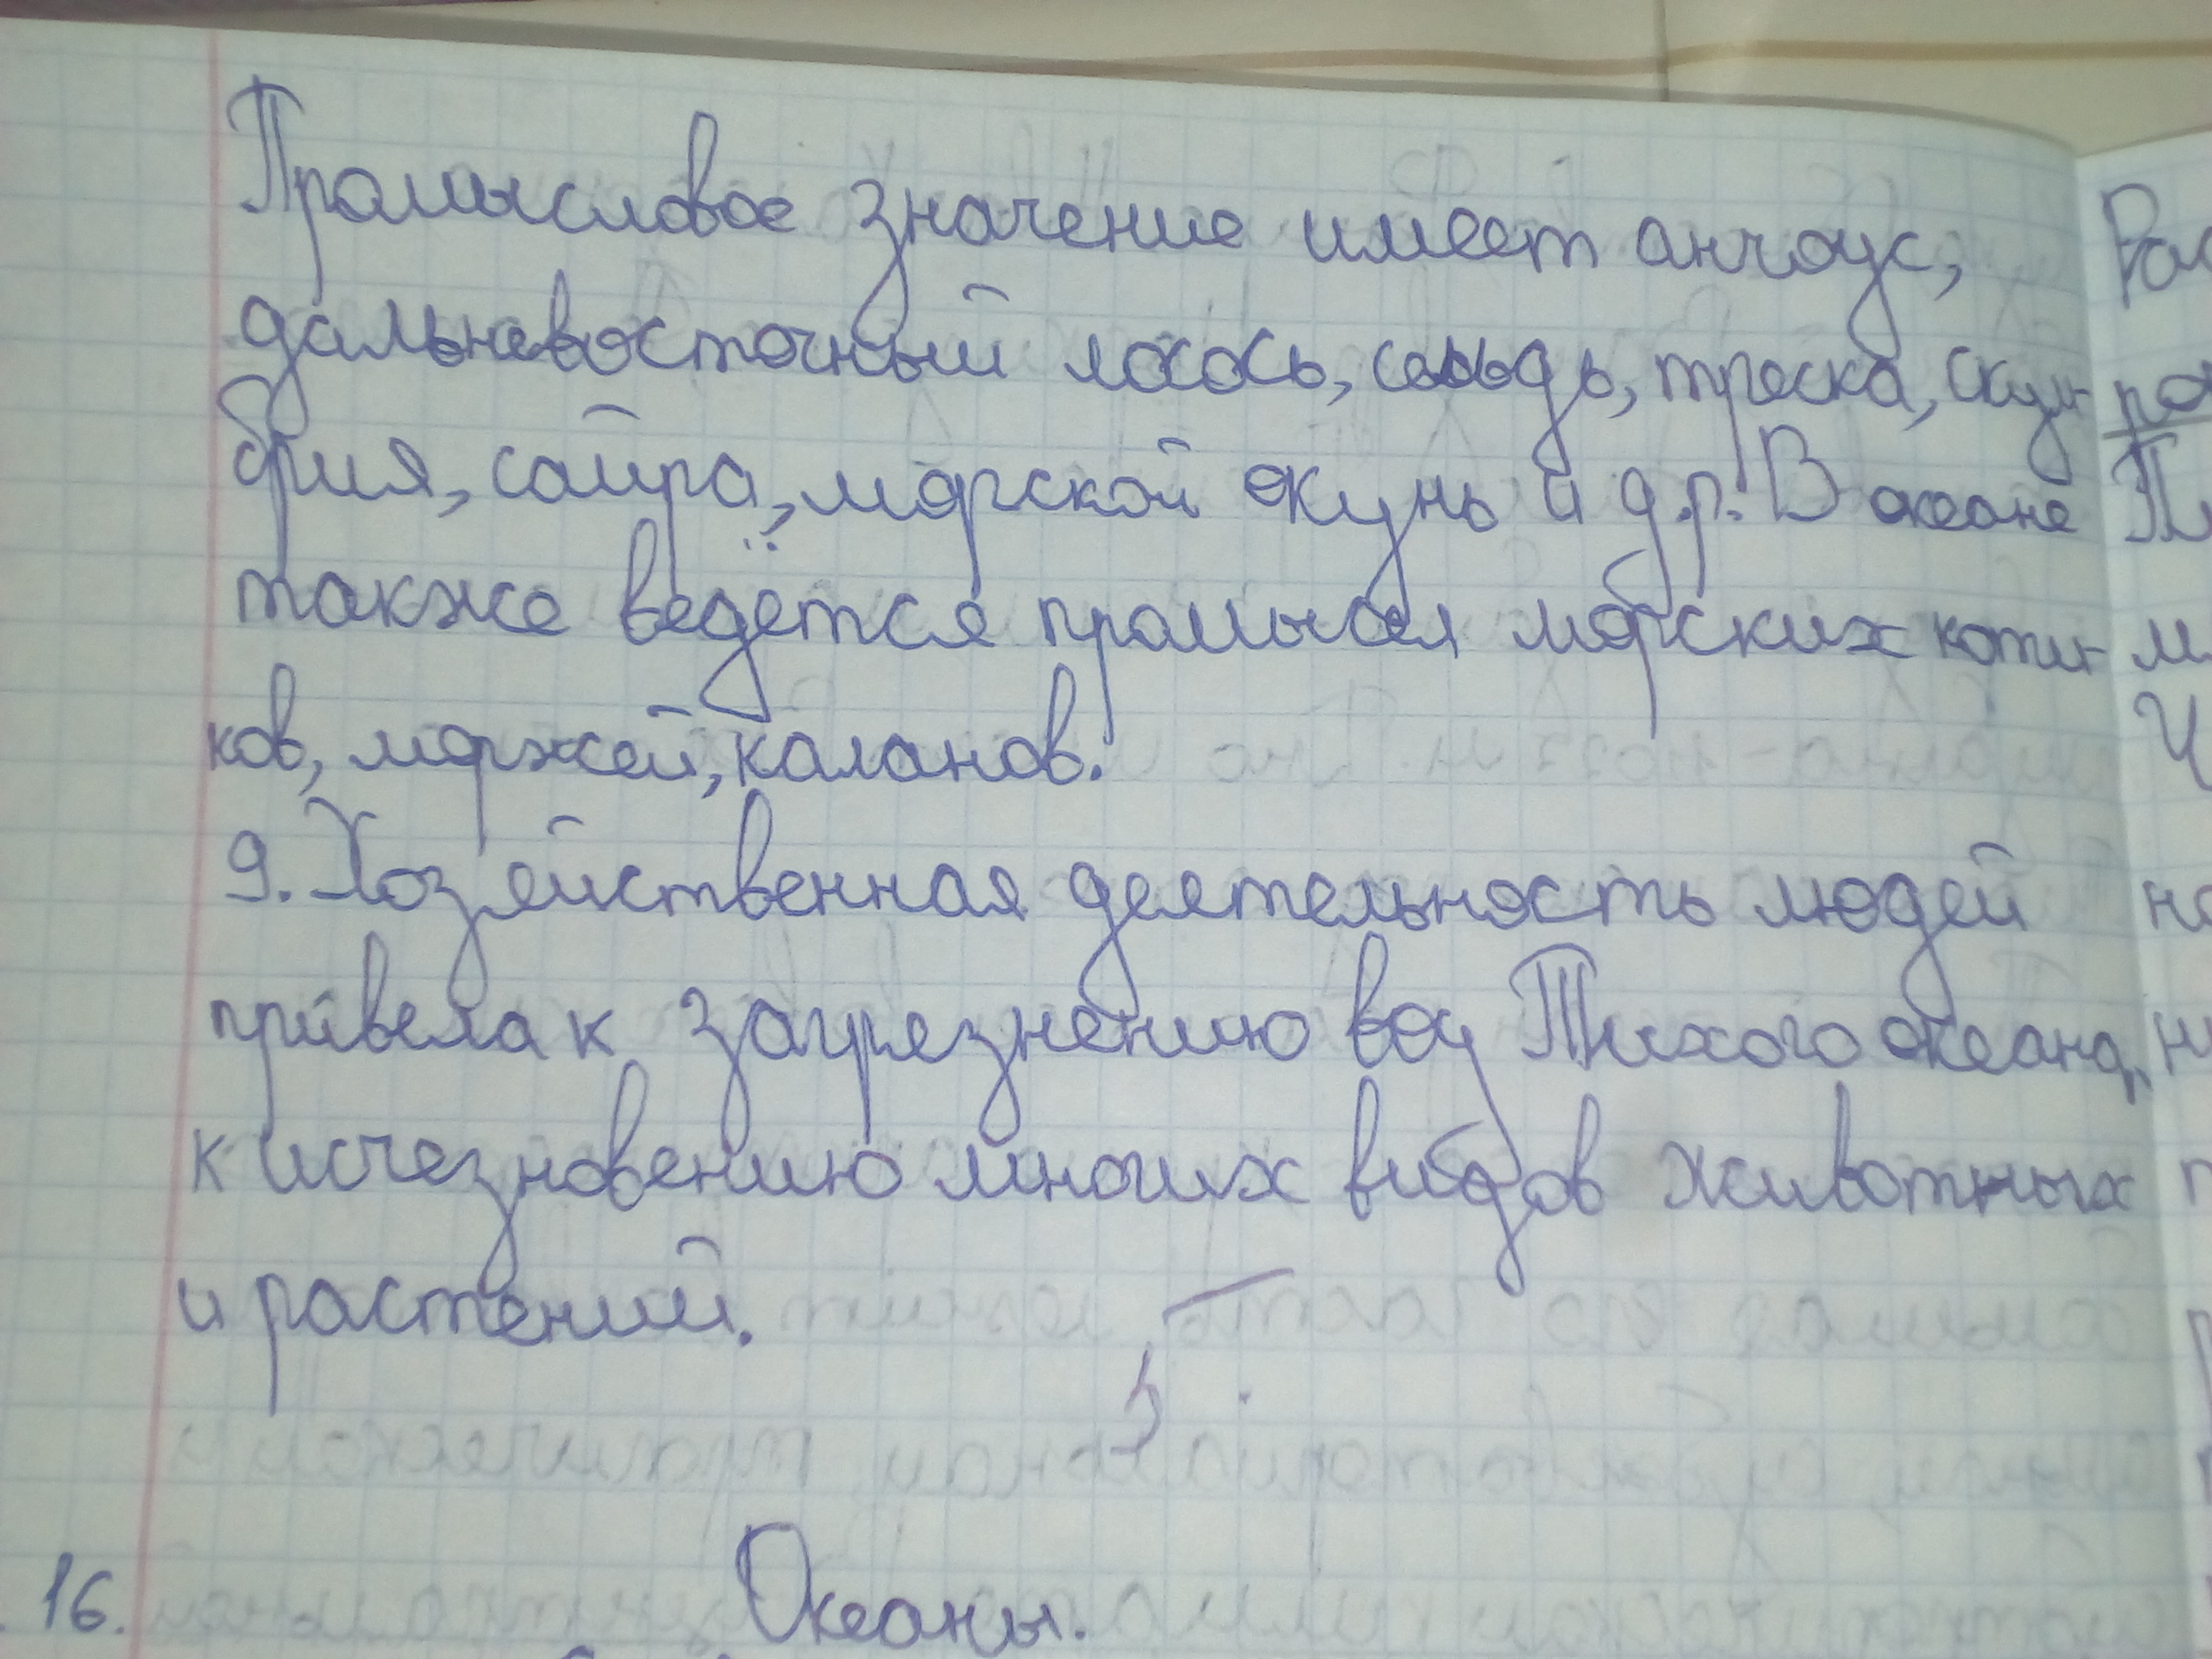 Промысловое значение имеет анчоус,
дальневосточный лосось, сельдь, треска, скум-
брия, сайра, морской окунь и др. В океане
также ведётся промысел морских коти-
ков, моржей, каланов.
9. Хозяйственная деятельность людей
привела к загрязнению вод Тихого океана,
к исчезновению многих видов животных
и растений.
5
16.
Океаны.